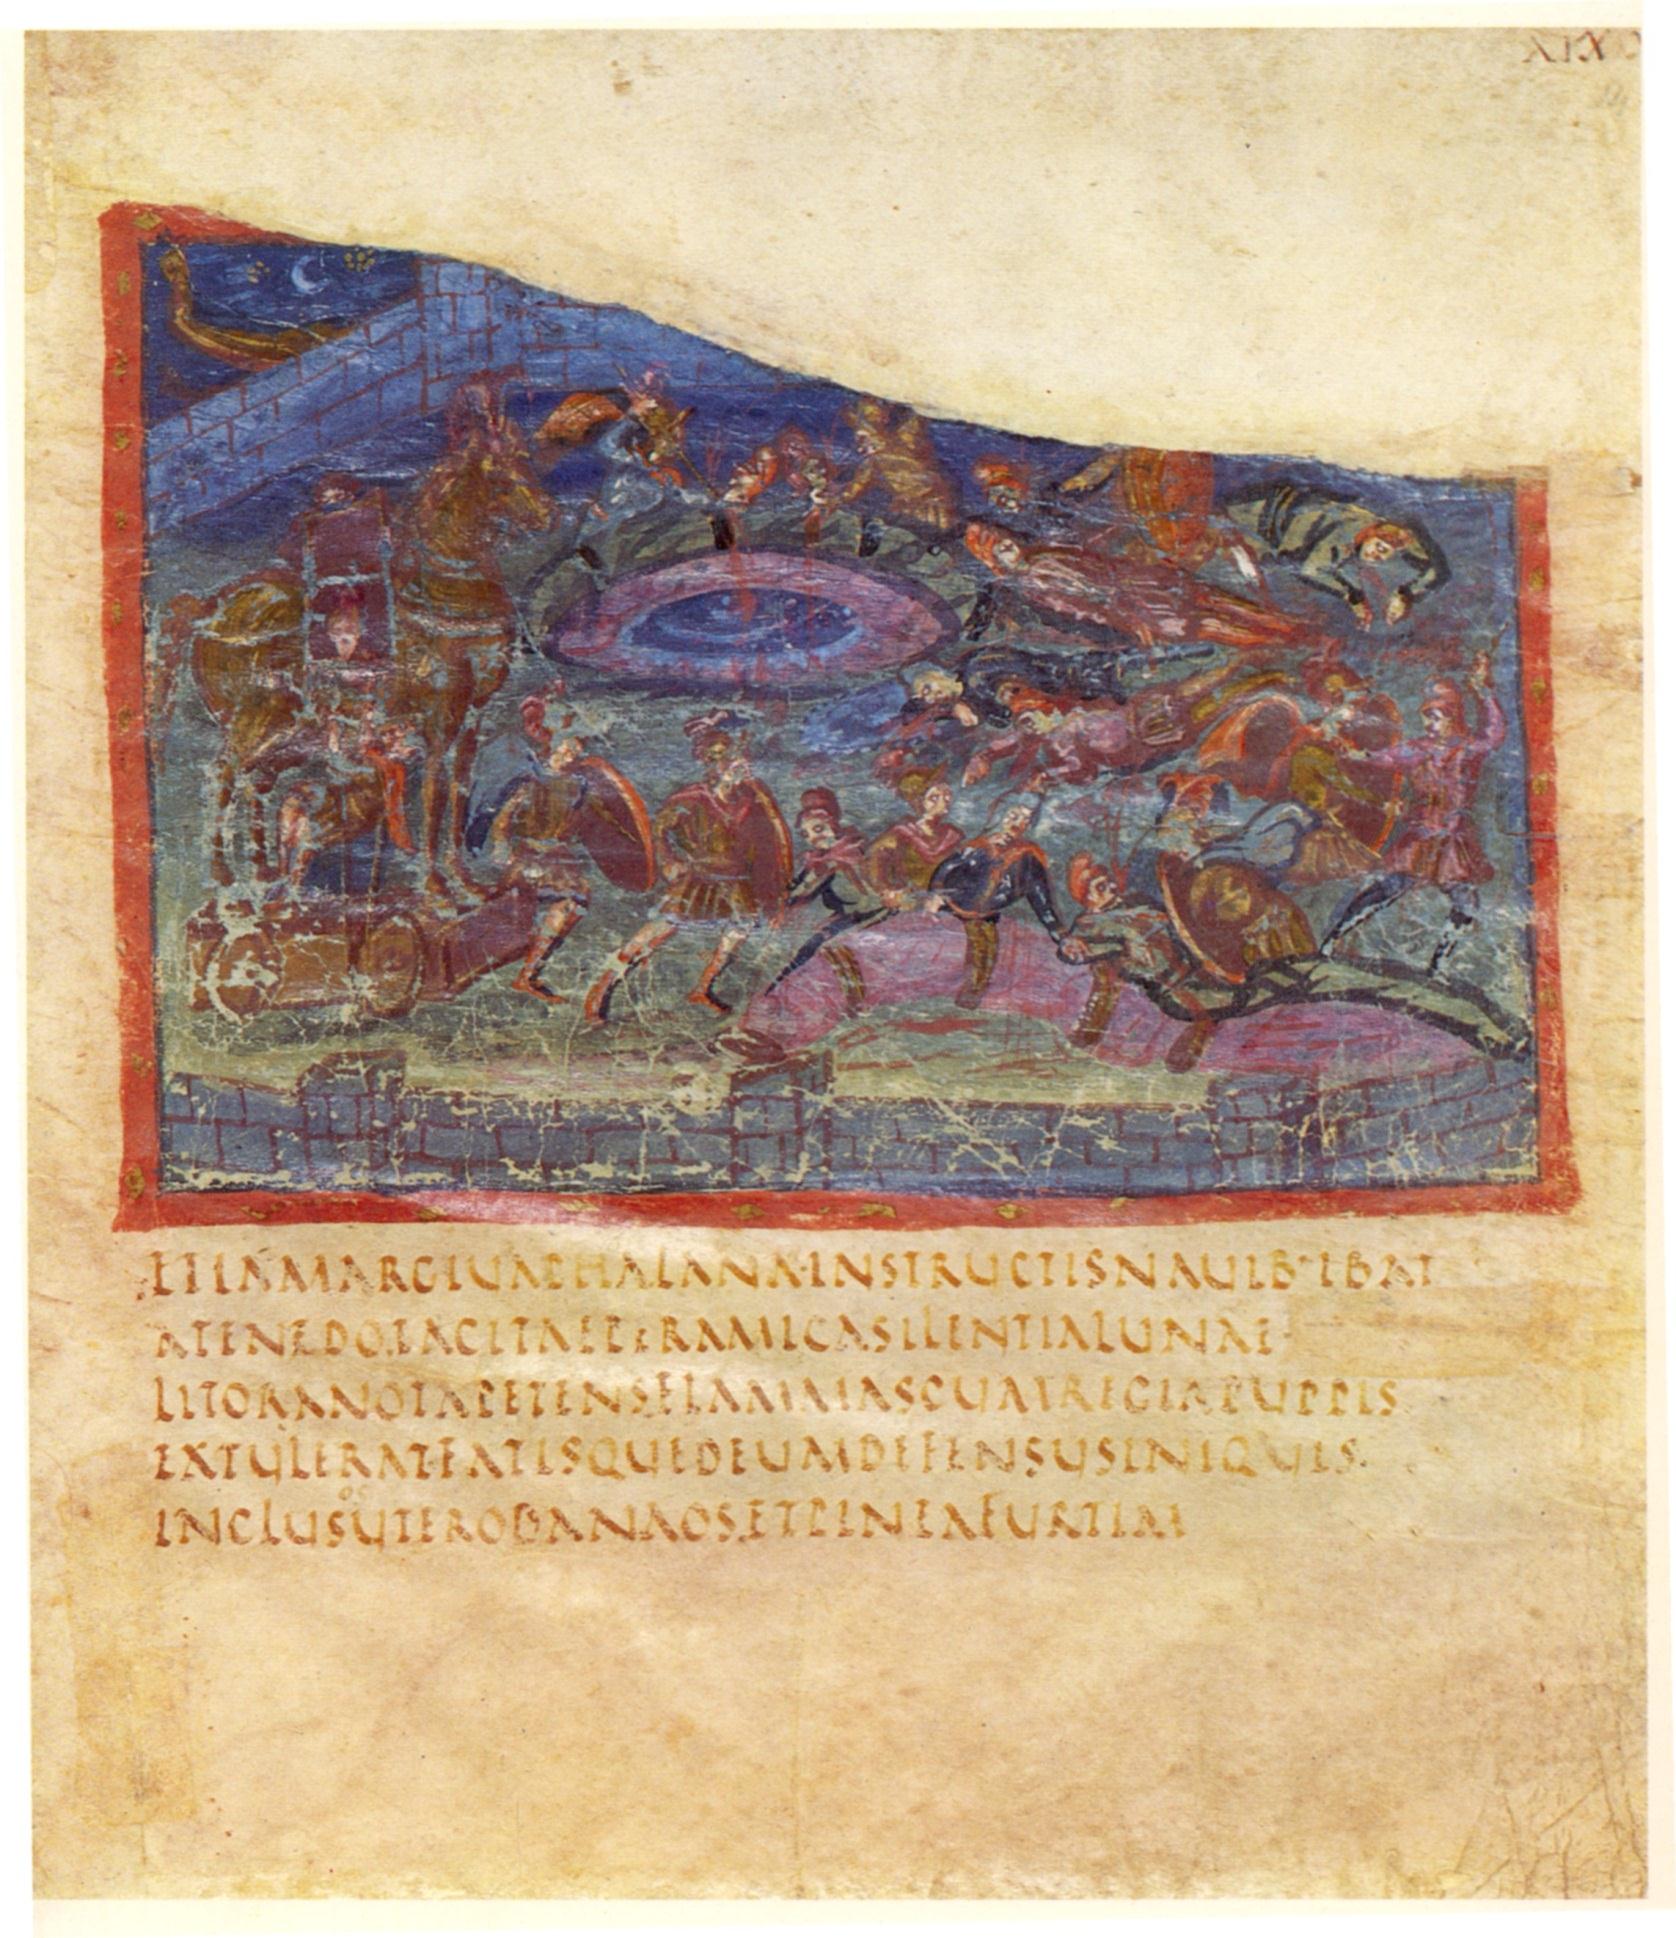 XIX
ETIAMARGIUAPHALANX·INSTRUCTISNAUIB·IBAT
ATENEDO·TACITAEPERAMICASILENTIALUNAE·
LITORANOTAPETENS·FLAMMASCUMREGIAPUPPIS
EXTULERAT·FATISQUEDEUMDEFENSUSINIQUIS·
os
INCLUSUTERODANAOS·ETPINEAFURTIM